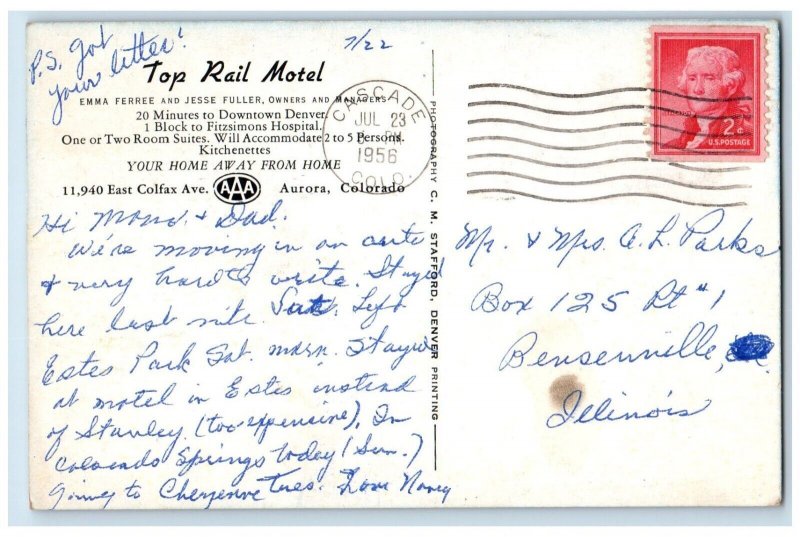 P.S. got
your letter!
7/22
Top Rail Motel
EMMA FERREE AND JESSE FULLER, OWNERS AND MANAGERS
20 Minutes to Downtown Denver
1 Block to Fitzsimons Hospital.
One or Two Room Suites. Will Accommodate 2 to 5 Persons.
Kitchenettes
YOUR HOME AWAY FROM HOME
11,940 East Colfax Ave. AAA Aurora, Colorado
CASCADE
JUL 23
PM
1956
COLO.
2¢
U.S. POSTAGE
Hi Mom & Dad.
We're moving in an auto
& very hard to write. Stayed
here last nite. Sat. Left
Estes Park Sat. morn. Stayed
at motel in Estes instead
of Stanley (too expensive). In
Colorado Springs today (Sun.)
Going to Cheyenne Tues. Love Nancy
PHOTOGRAPHY C. M. STAFFORD, DENVER PRINTING
Mr. & Mrs. A. L. Parks
Box 125 Rt #1
Bensenville,
Illinois